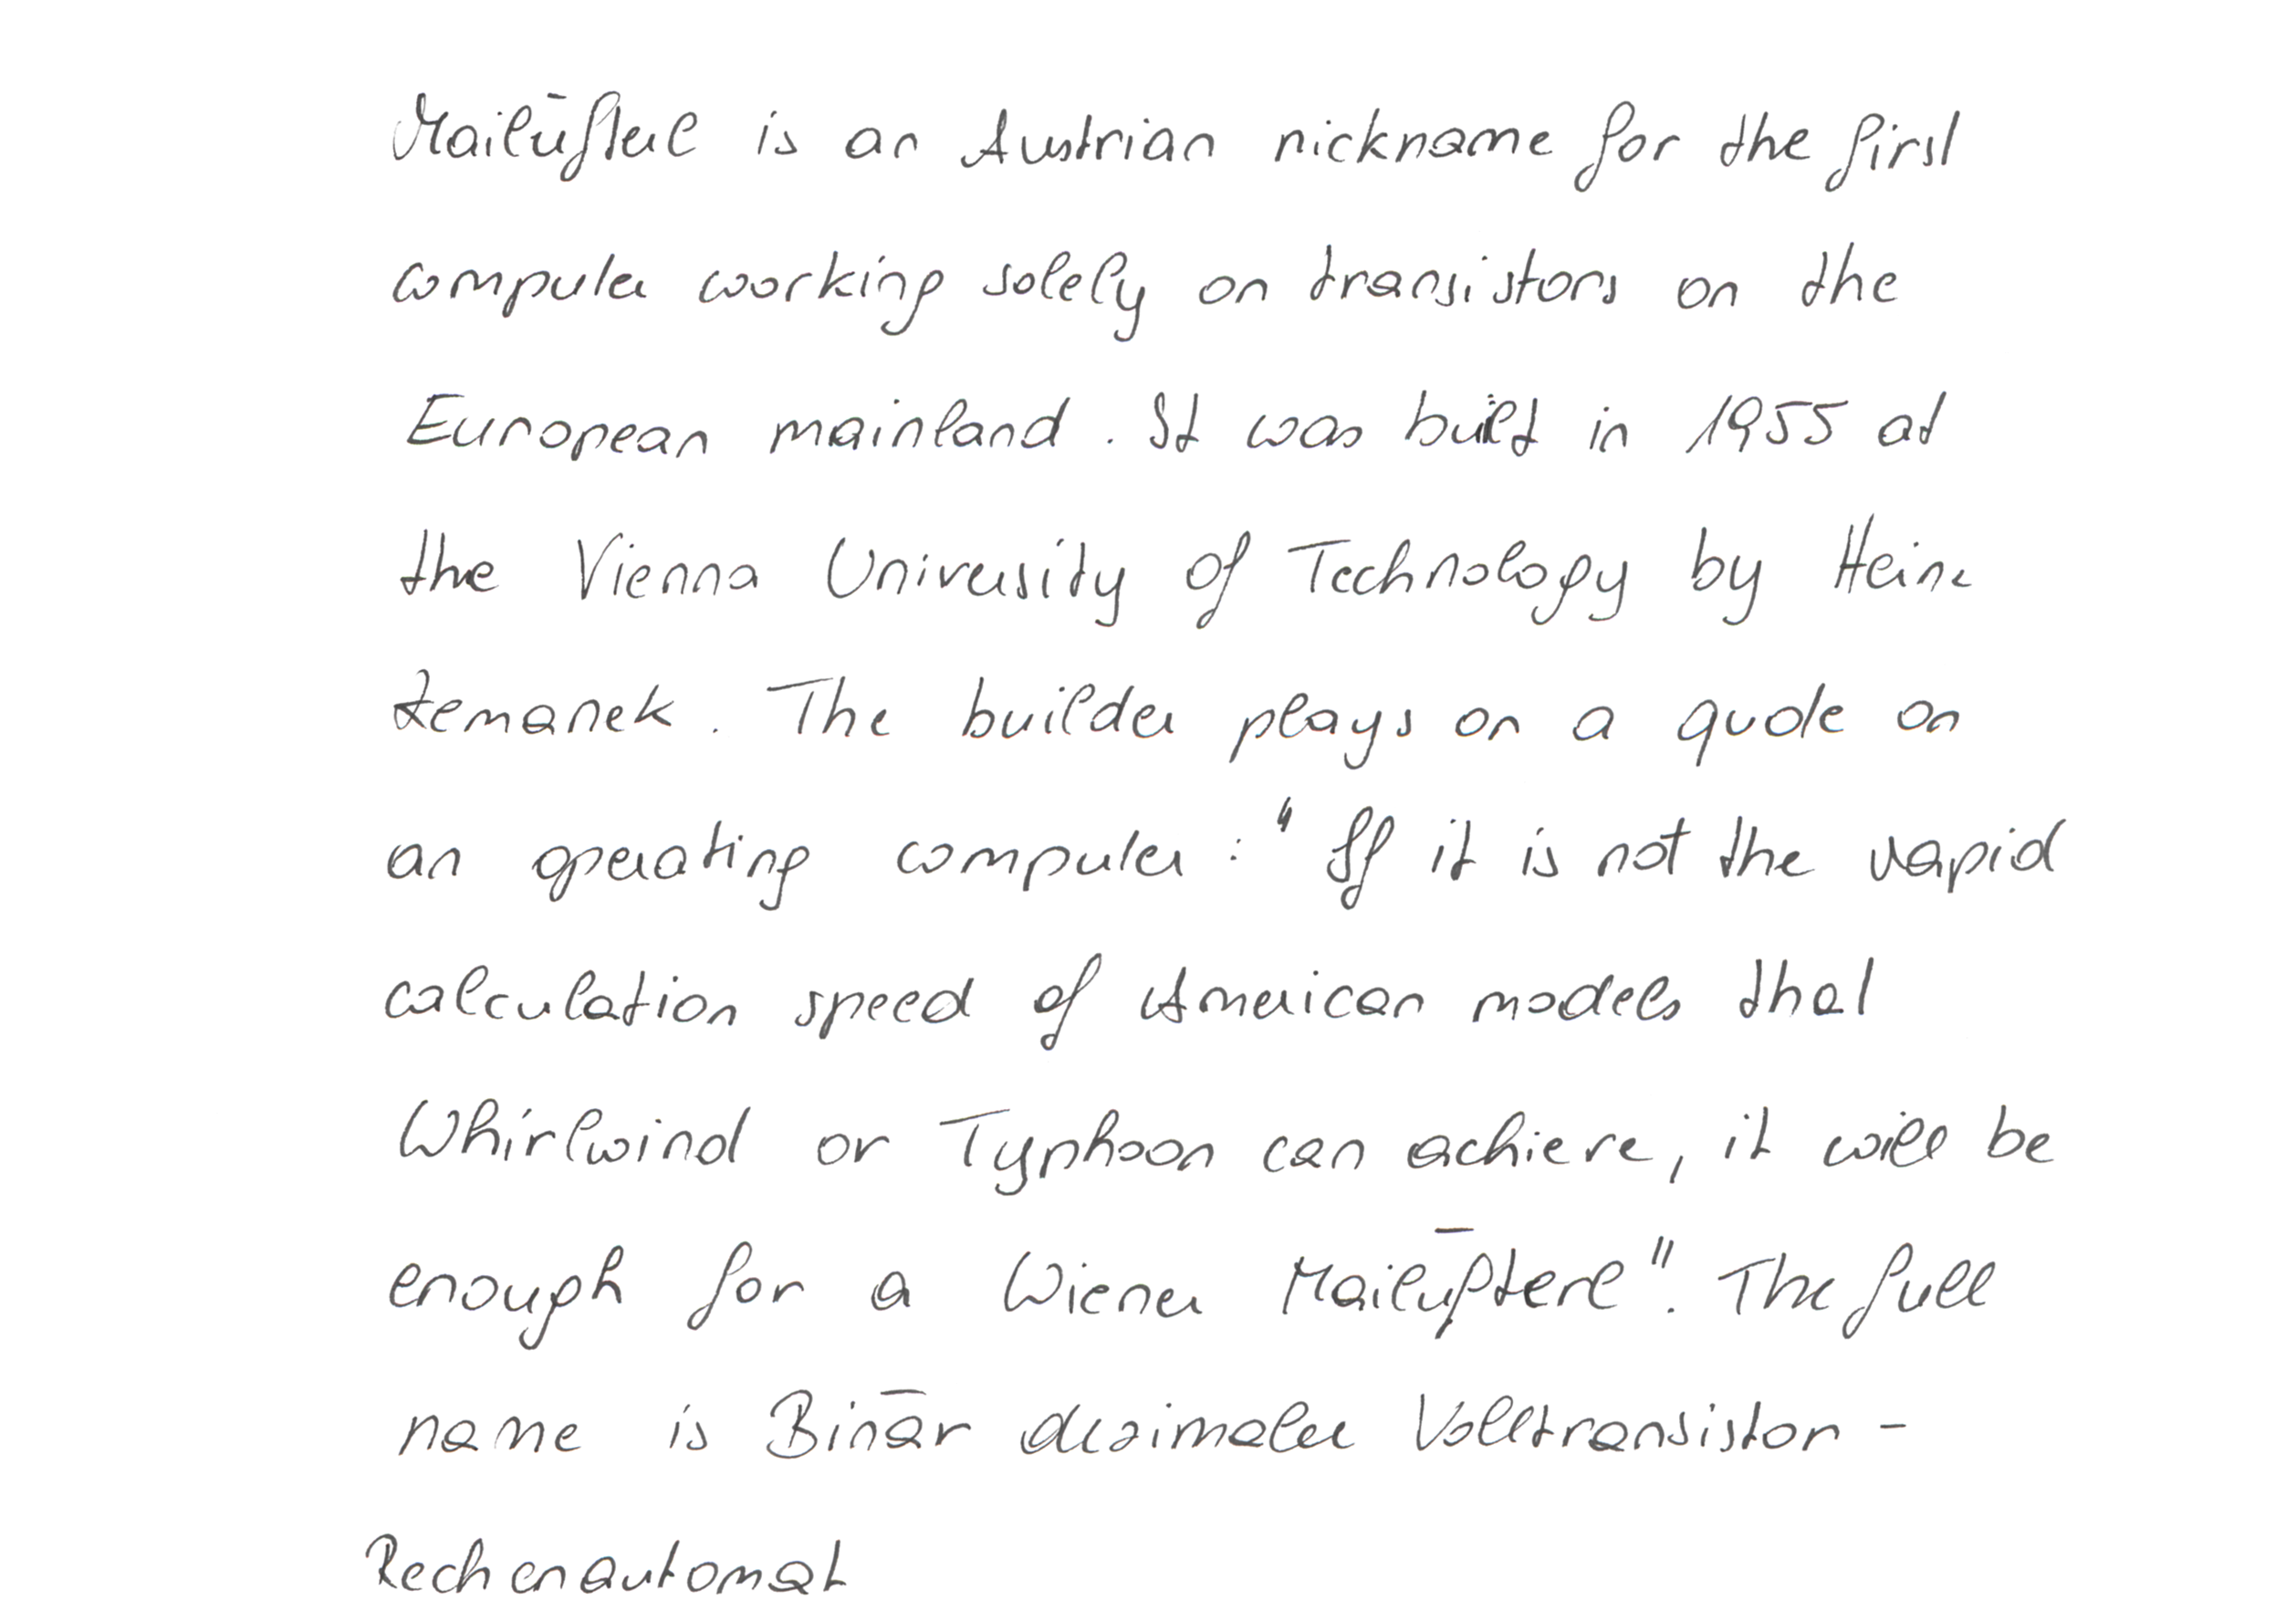 Mailüfterl is an Austrian nickname for the first
computer working solely on transistors on the
European mainland. It was built in 1955 at
the Vienna University of Technology by Heinz
Zemanek. The builder plays on a quote on
an operating computer: "If it is not the rapid
calculation speed of American models that
Whirlwind or Typhoon can achieve, it will be
enough for a Wiener Mailüfterl". The full
name is Binär dezimaler Volltransistor-
Rechenautomat